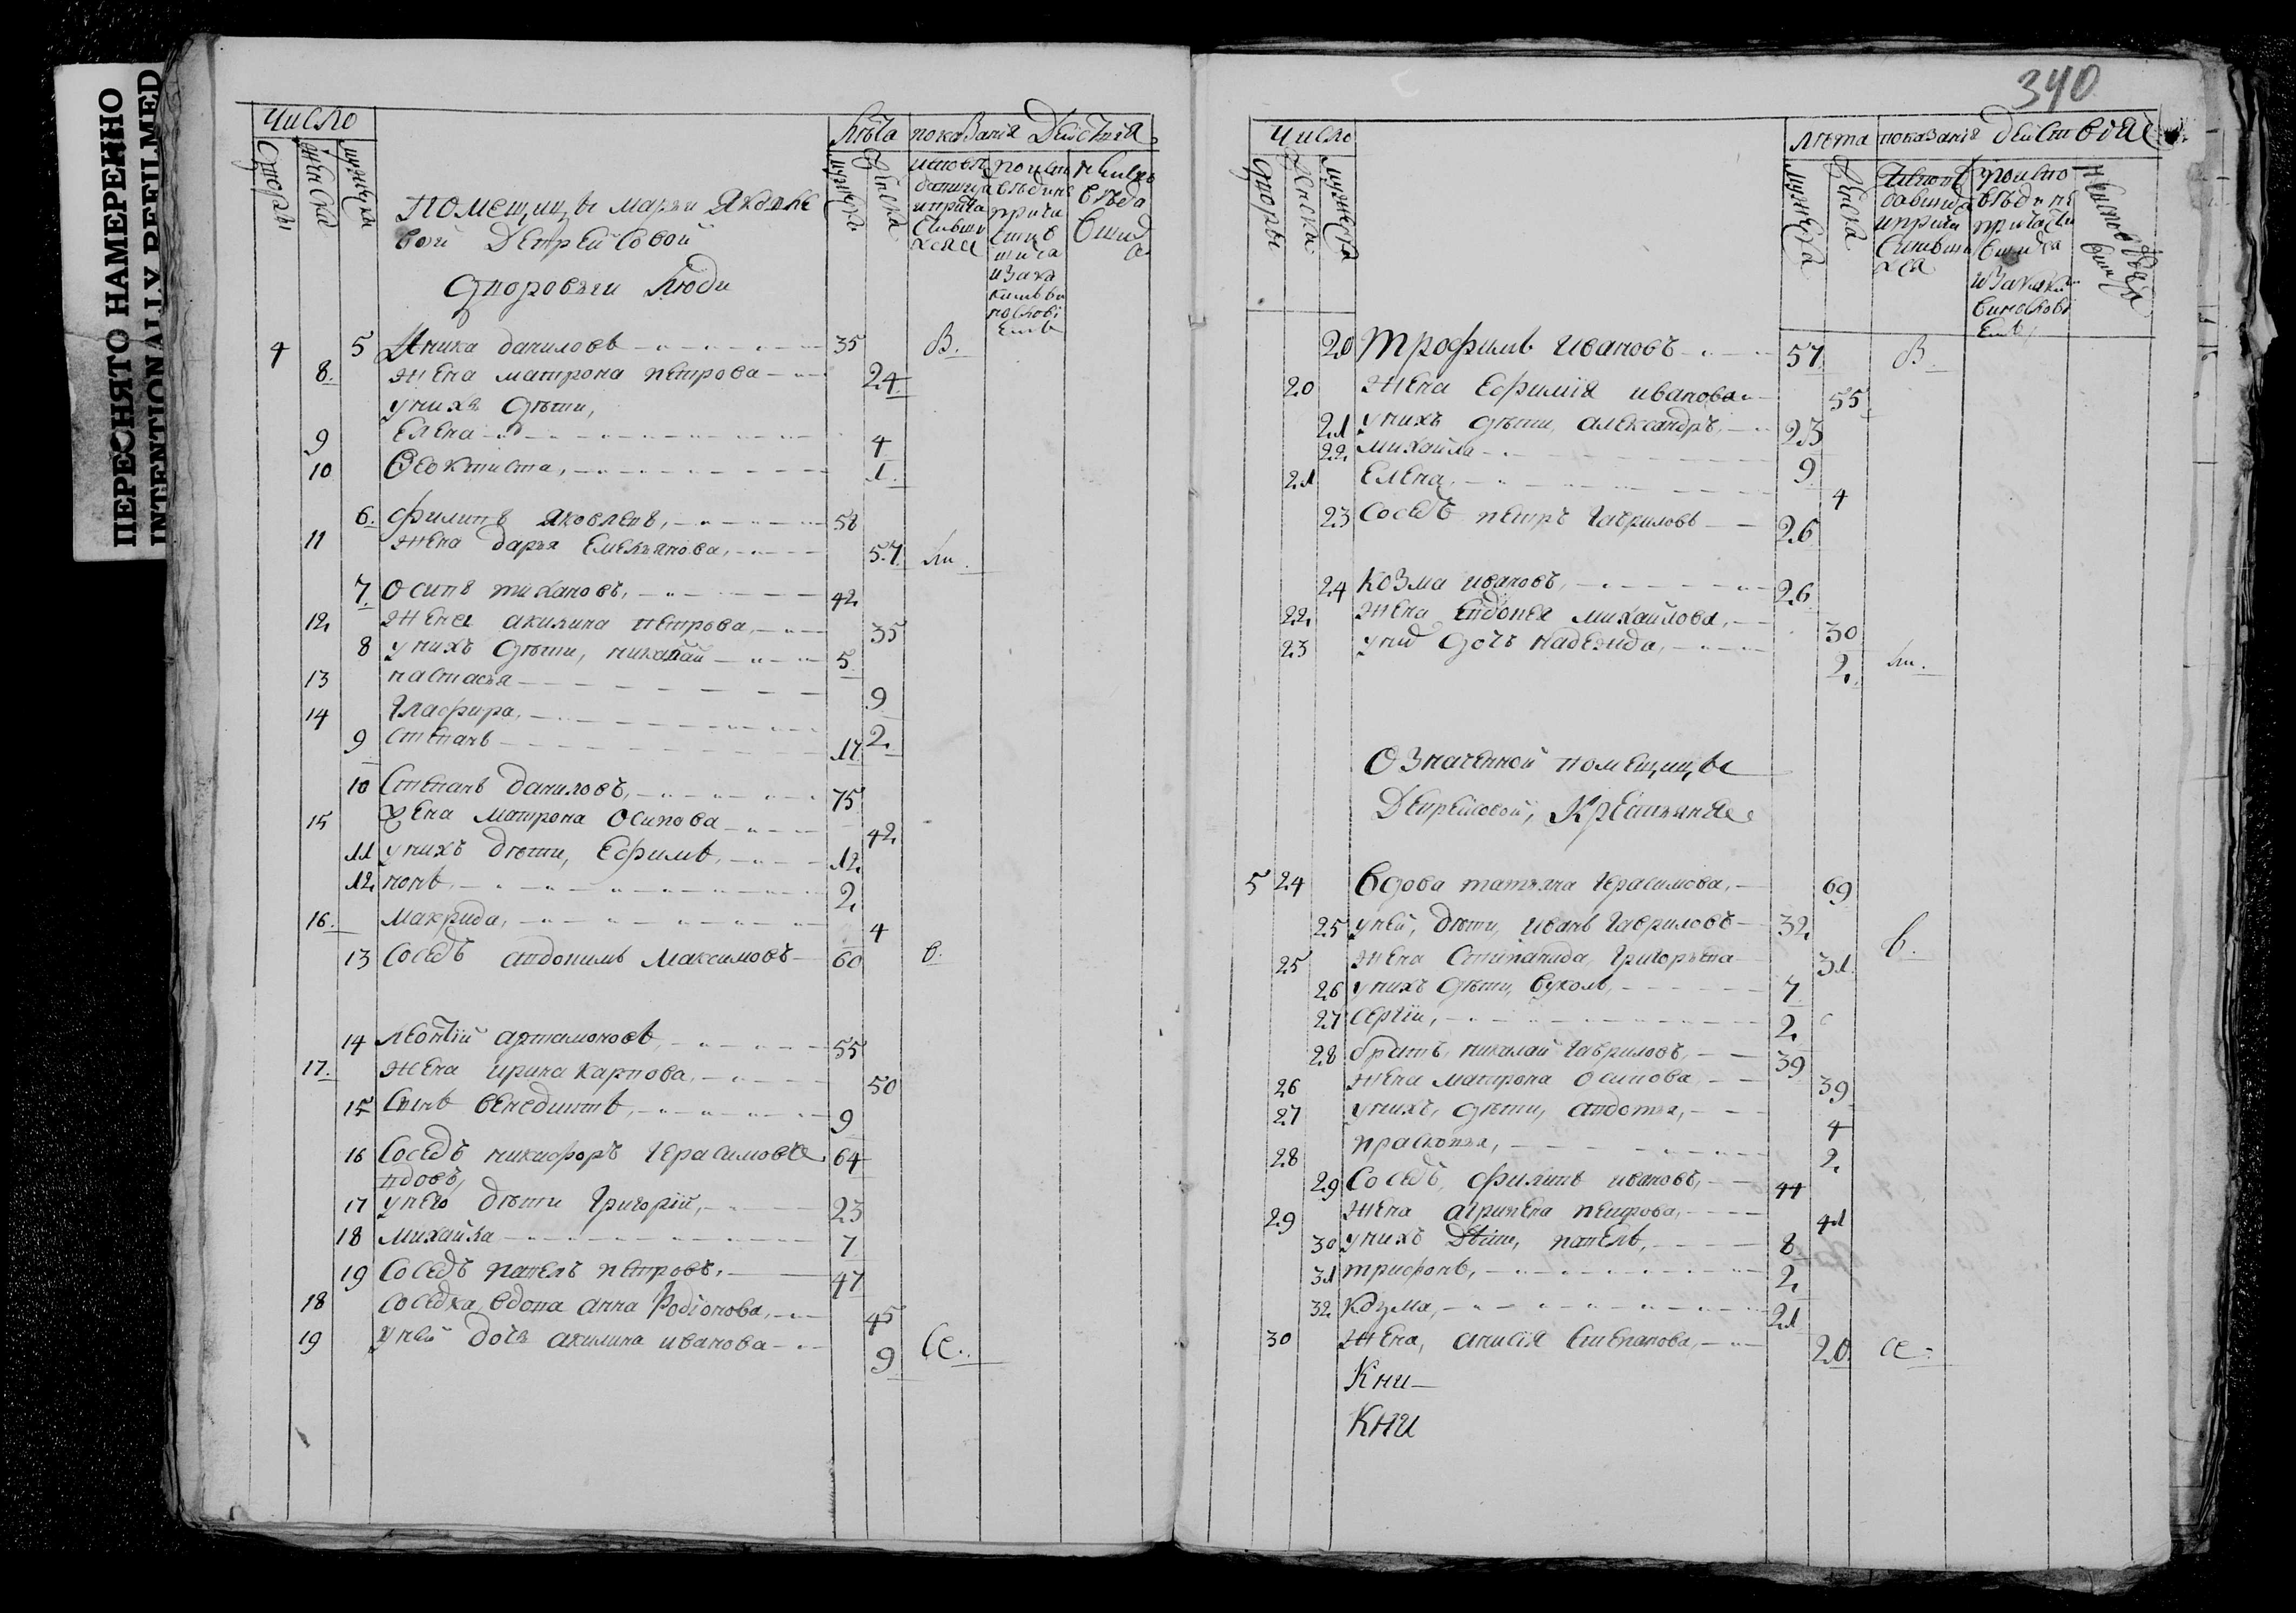 ПЕРЕСНЯТО НАМЕРЕННО
INTENTIONALLY REFILMED
Число
дворы
женска
мужеска
Помещицы Марьи Яковле
вой Депрейсовой
дворовыи Люди
Лѣта
мужеска
женска
показания Действия
4 5 Аника данилов 35 В.
8. жена матрона петрова 24
у них дѣти,
9 Елена 4
10 Феоктиста, 1.
6. филипъ яковлевъ, 58
11 жена дарья Емельянова, 57.
7. Осипъ тихановъ, 42
12. жена акилина петрова, 35
8 у нихъ дѣти, никалай 5
13 настасья 9
14 Глафира, 2.
9 Степанъ 17
10 Степанъ даниловъ, 75
15 жена матрона Осипова 42.
11 у нихъ дѣти, Ефимъ, 12.
12. нонъ, 2.
16. макрида, 4
13 Соседъ андонимъ Максимовъ 60 в.
14 леонтий артамоновъ, 55
17. жена ирина карпова, 50
15 Сынъ венедиктъ, 9
16 Соседъ никифоръ Герасимовъ 64
вдовъ,
17 у него дѣти Григорій, 23
18 михайла 7
19 Соседъ павелъ петровъ, 47
18 соседка, вдова анна Родіонова, 45
19 у ней дочь акилина иванова 9 Се.
340
Число
дворы
женска
мужеска
лѣта
мужеска
женска
показания действия
20 трофимъ ивановъ 57. В.
20 жена Ефимія иванова 55
21 у нихъ дѣти, александръ, 23
22. михайла 9
21 Елена, 4
23 Соседъ петръ Гавриловъ 26
24 козма ивановъ, 26
22. жена Евдокея михайлова, 30
23 у нихъ дочь надежда, 2.
Означенной помещицы
Депрейсовой, Крестьяне
5 24 вдова татьяна Герасимова, 69
25 у ней, дѣти, иванъ Гавриловъ 32. в.
25 жена Степанида Григорьева 31.
26 у нихъ дѣти, вуколъ, 7
27 Сергіи, 2.
28 братъ, николай Гавриловъ, 39
26 жена матрона осипова 39
27 у нихъ, дѣти, авдотья, 4
28 прасковья, 2.
29 Соседъ, филипъ ивановъ, 44
29 жена агрипена петрова, 41
30 у нихъ дѣти, павелъ, 8
31 трифонъ, 2.
32 козма, 21
30 жена, анисія Степанова, 20. се.
Кни
Кни